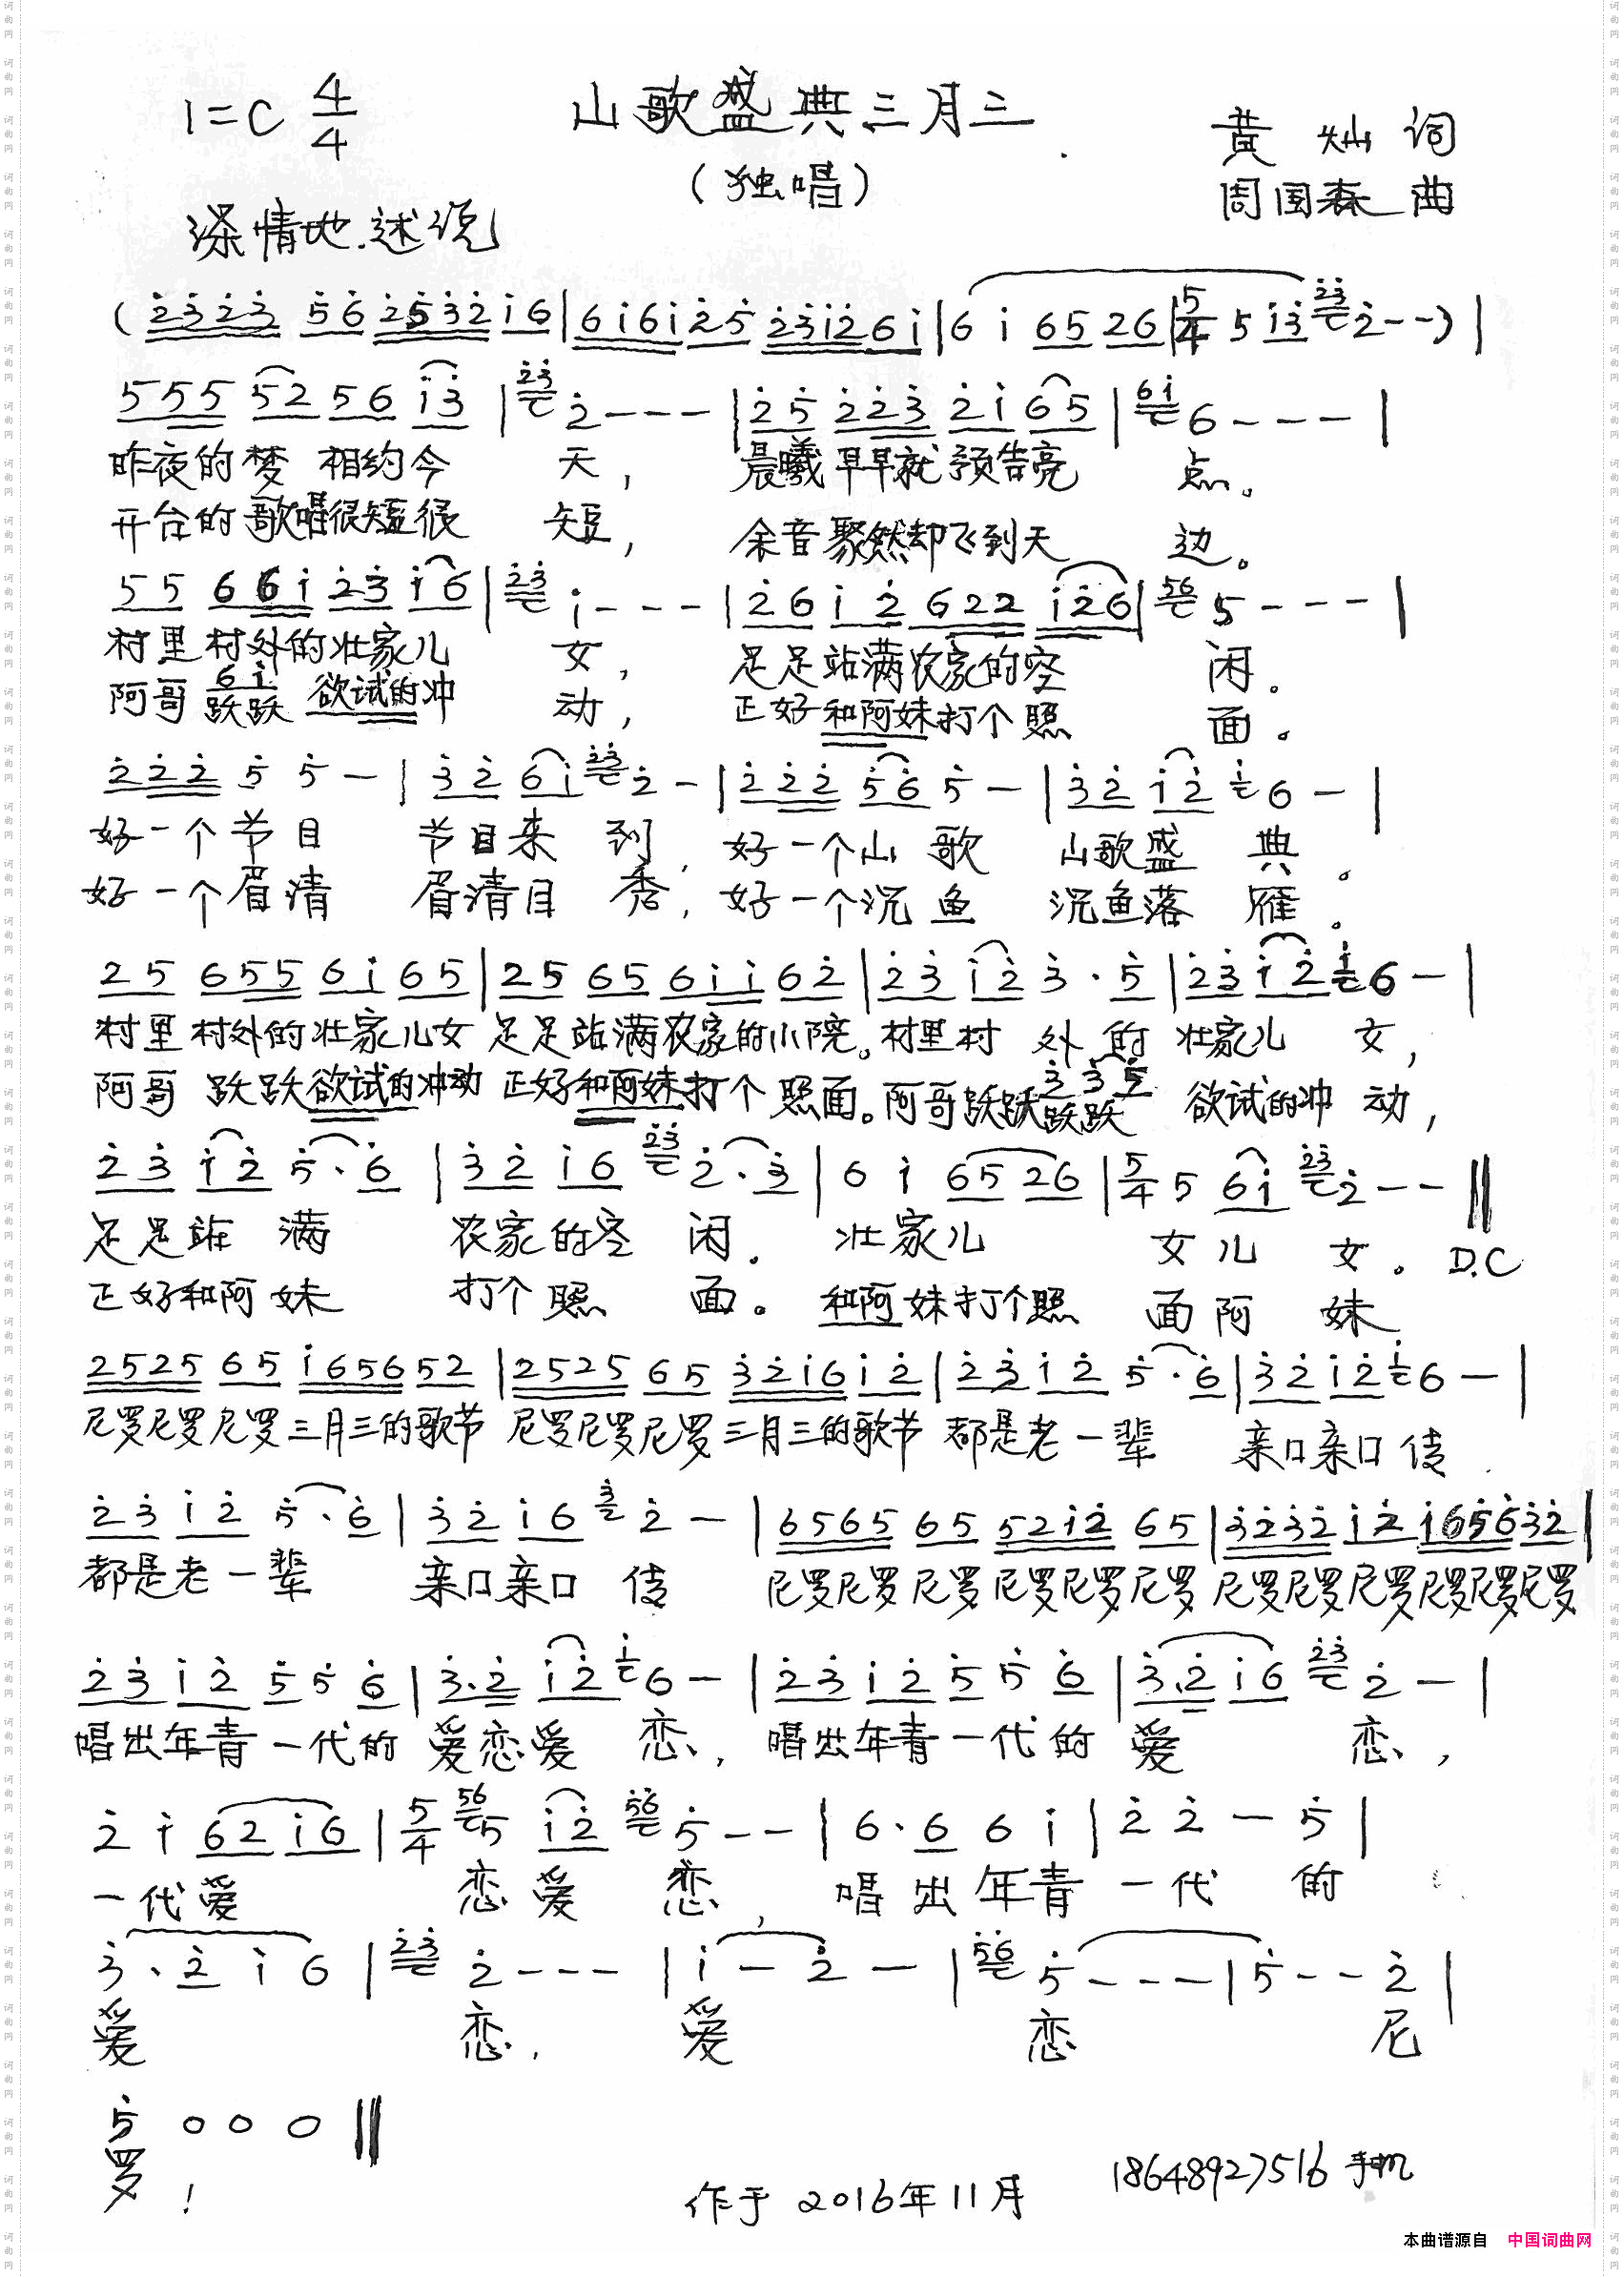 1=C 4/4
山歌盛典三月三
(独唱)
黄灿词
周国森曲
深情地.述说
(2323 56 253216|6161 25 231261|6 1 65 26|5/4 5 13 23 2--)|
555 52 56 13|23 2---|25 223 21 65|61 6---|
昨夜的梦 相约今 天, 晨曦早早就预告亮 点。
开台的歌唱很短很 短, 余音聚然却飞到天 边。
55 661 23 16|23 1---|26 12 622 126|56 5---|
村里村外的壮家儿 女, 足足站满农家的空 闲。
61
阿哥跃跃欲试的冲 动, 正好和阿妹打个照 面。
222 5 5-|32 61 23 2-|222 56 5-|32 12 1 6-|
好一个节目 节目来 到, 好一个山歌 山歌盛 典。
好一个眉清 眉清目 秀, 好一个沉鱼 沉鱼落 雁。
25 655 61 65|25 65 611 62|23 12 3·5|23 12 1 6-|
村里村外的壮家儿女 足足站满农家的小院。村里村 外的 壮家儿 女,
3 3 5
阿哥 跃跃欲试的冲动 正好和阿妹打个照面。阿哥跃跃跃跃 欲试的冲 动,
23 12 5·6|32 16 23 2·3|6 1 65 26|5/4 5 61 23 2--‖
足足站 满 农家的空 闲. 壮家儿 女儿 女。D.C
正好和阿妹 打个照 面。和阿妹打个照 面阿 妹
2525 65 1656 52|2525 65 3216 12|23 12 5·6|32 12 1 6-|
尼罗尼罗尼罗三月三的歌节 尼罗尼罗尼罗三月三的歌节 都是老一辈 亲口亲口传
23 12 5·6|32 16 3 2-|6565 65 5212 65|3232 12 1656 32|
都是老一辈 亲口亲口 传 尼罗尼罗尼罗尼罗尼罗尼罗 尼罗尼罗尼罗尼罗尼罗尼罗
23 12 5 5 6|3·2 12 1 6-|23 12 5 5 6|3·2 16 23 2-|
唱出年青一代的 爱恋爱 恋, 唱出年青一代的 爱 恋,
2 1 62 16|5/4 56 5 12 56 5--|6·6 6 1|2 2-5|
一代爱 恋爱 恋, 唱出年青一代 的
3·2 1 6|23 2---|1-2-|56 5---|5--2|
爱 恋, 爱 恋 尼
5 0 0 0‖
罗!
作于2016年11月
18648927516手机
本曲谱源自 中国词曲网